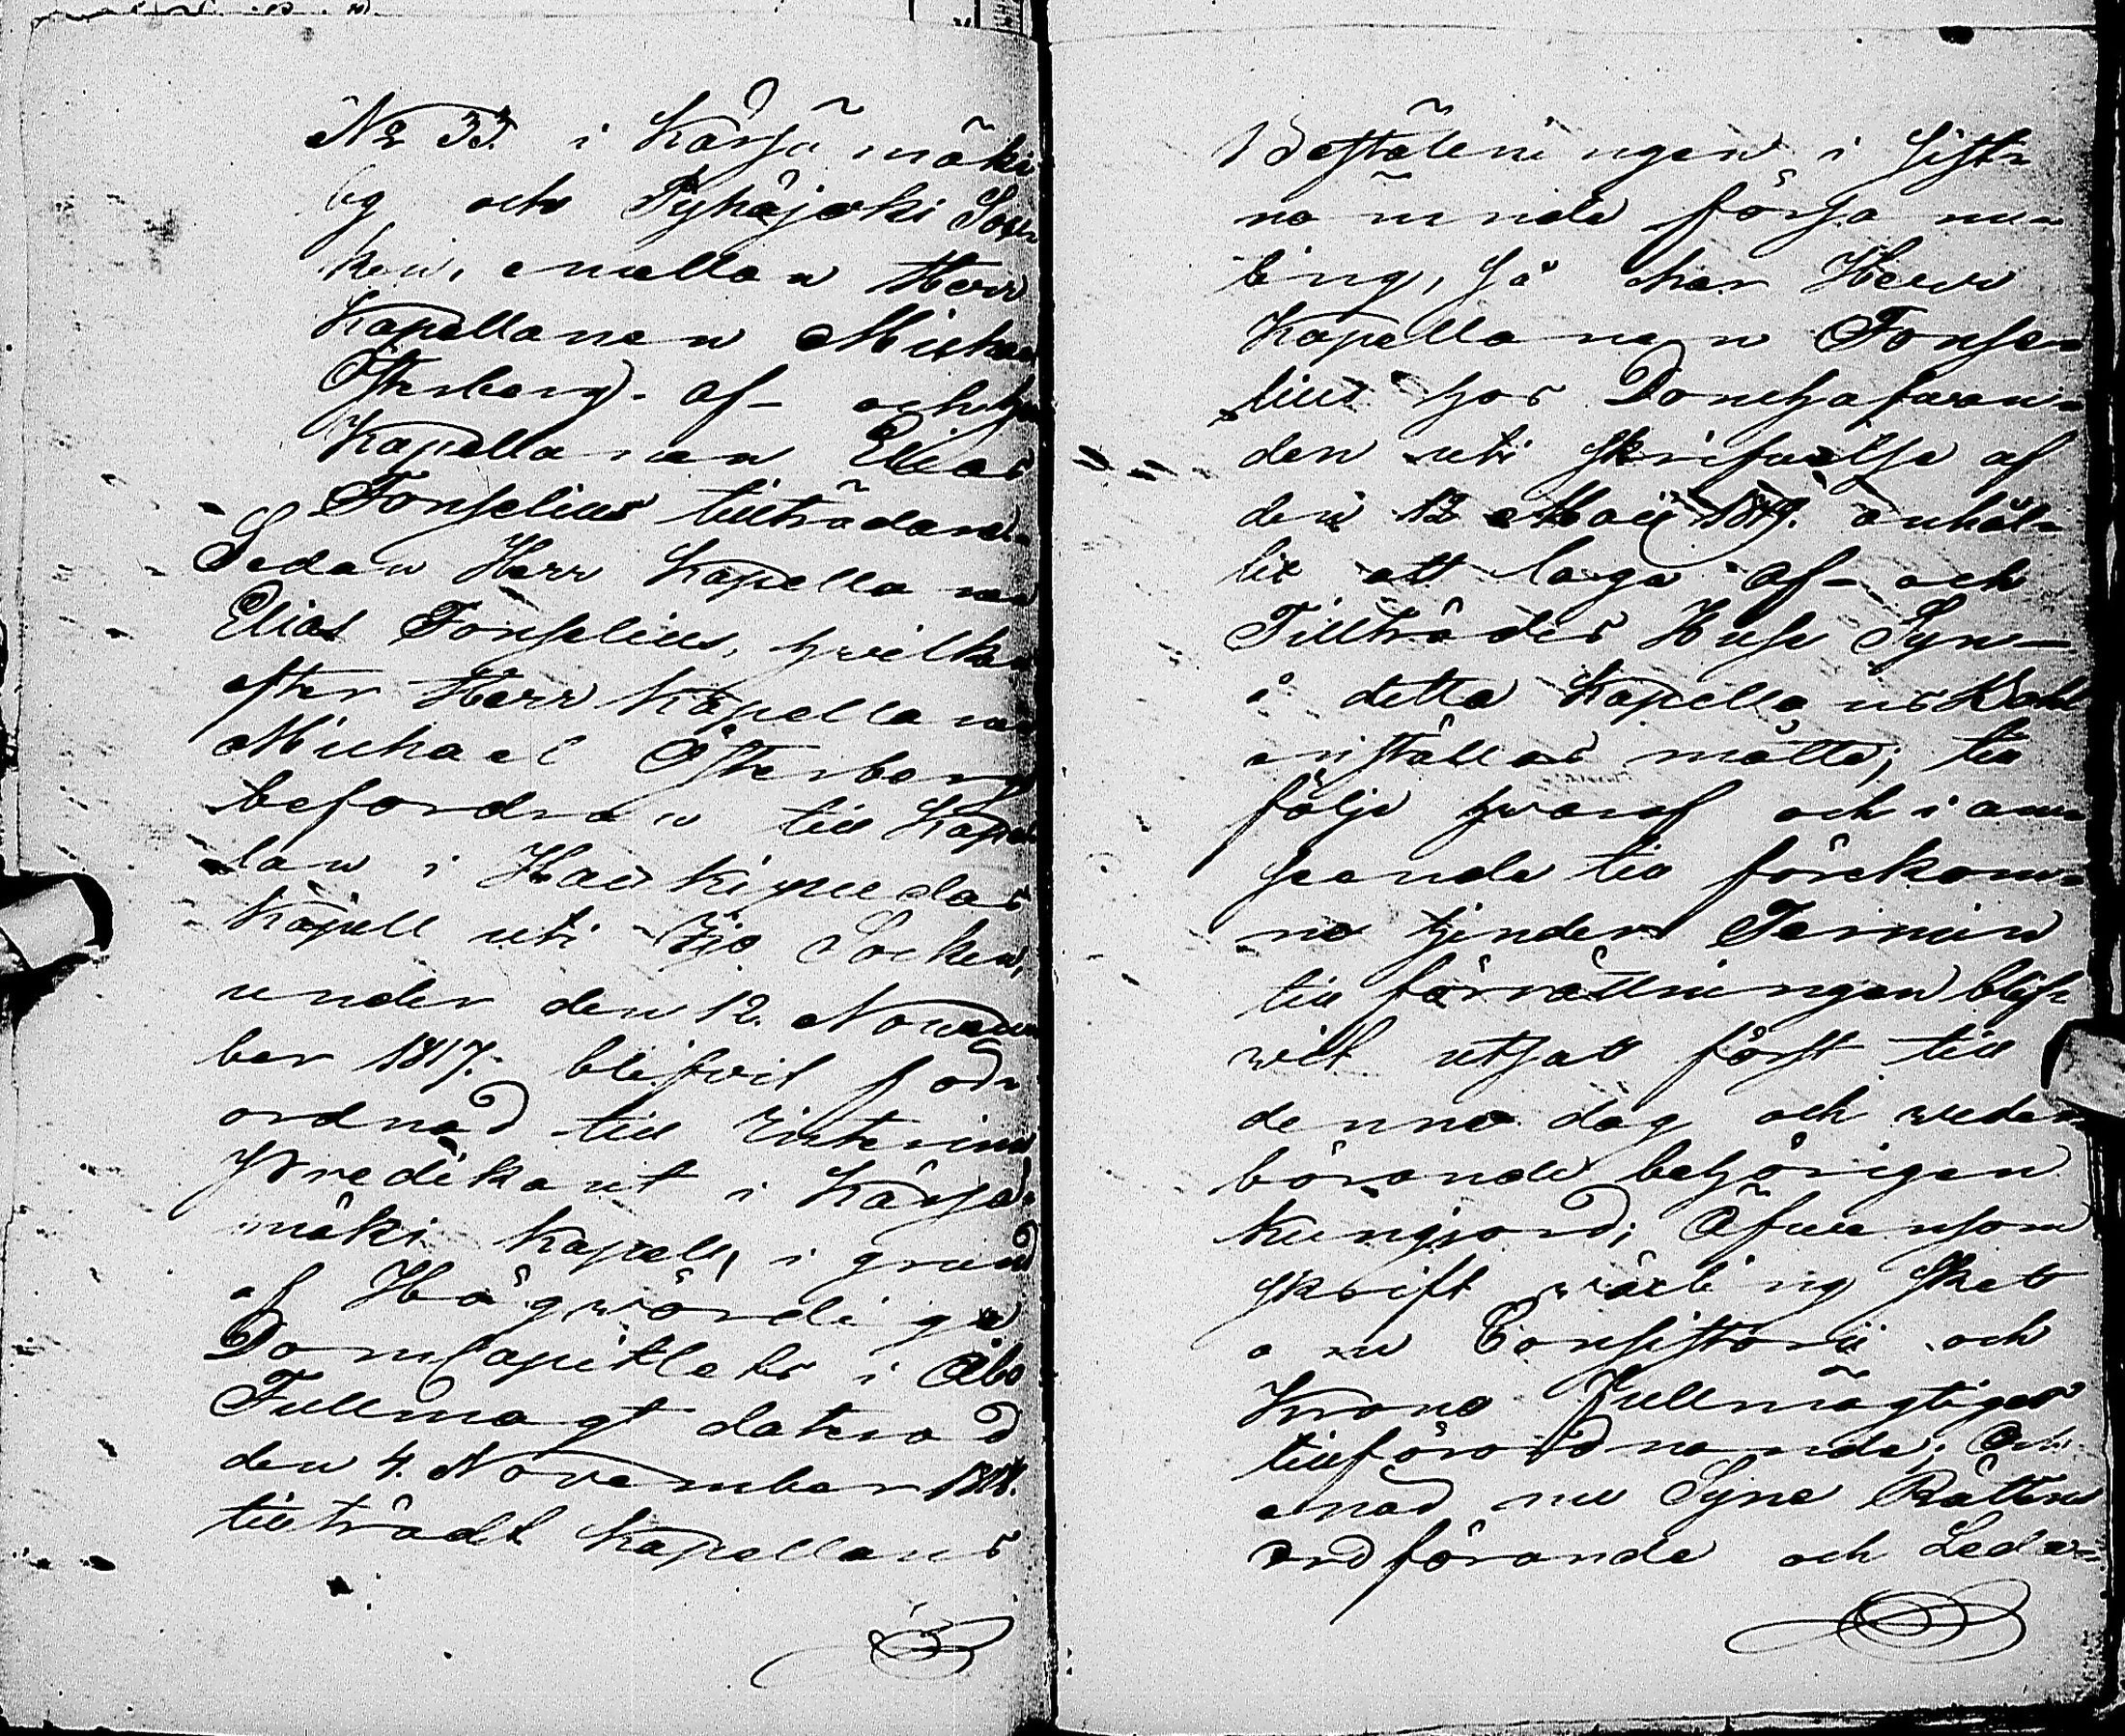 No 33. i Kärsämäki
by och Pyhäjoki Soc-
ken, emellan Herr
Kapellanen Michael
Österberg. af- och
Kapellanen Elias
Fonselius tillträdande.
Sedan Herr Kapellanen
Elias Fonselius, hvilken
efter Herr Kapellanen
Michael Österbergs
befordran till Kapel-
lan i Haukipudas
Kapell uti Ijo Socken,
under den 12. Novem-
ber 1817. blifvit för-
ordnad till Interims
Predikant i Kärsä-
mäki Kapell, i grund
af Högwördige
DomCapitlets i Åbo
Fullmagt daterad
den 4. November 1818.
tillträdt Kapellans
Beställningen i sist-
nämnde försam-
ling, så har Herr
Kapellanen Fonse-
lius hos Domhafwan-
den uti skrifwelse af
den 12 Maij 1819. anhål-
lit att laga af- och
Tillträdes Huse Syn
å detta Kapellans Bohl
anställas måtte; till
följe hwaraf och i an-
seende till förekom-
ne hinder Termin
till förrättningen blif-
wit utsatt först till
denne dag och weder-
börande behörigen
kungjord; Äfwensom
skrift wäxling skett
om Consistorii och
Krono Fullmägtiges
tillförordnande; Och
enär nu Syne Rättens
ordförande och Leda-